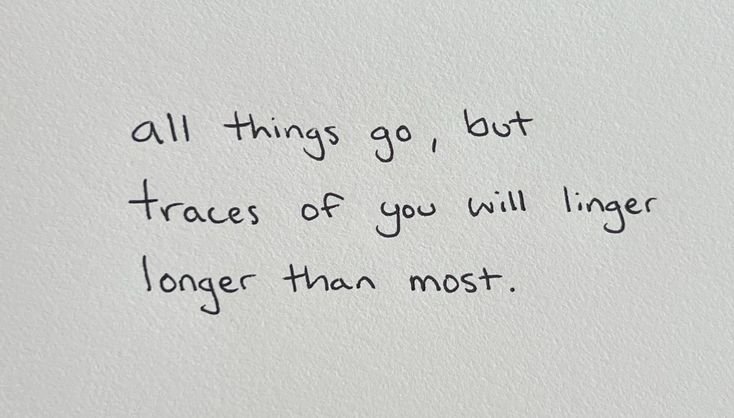 all things go, but
traces of you will linger
longer than most.